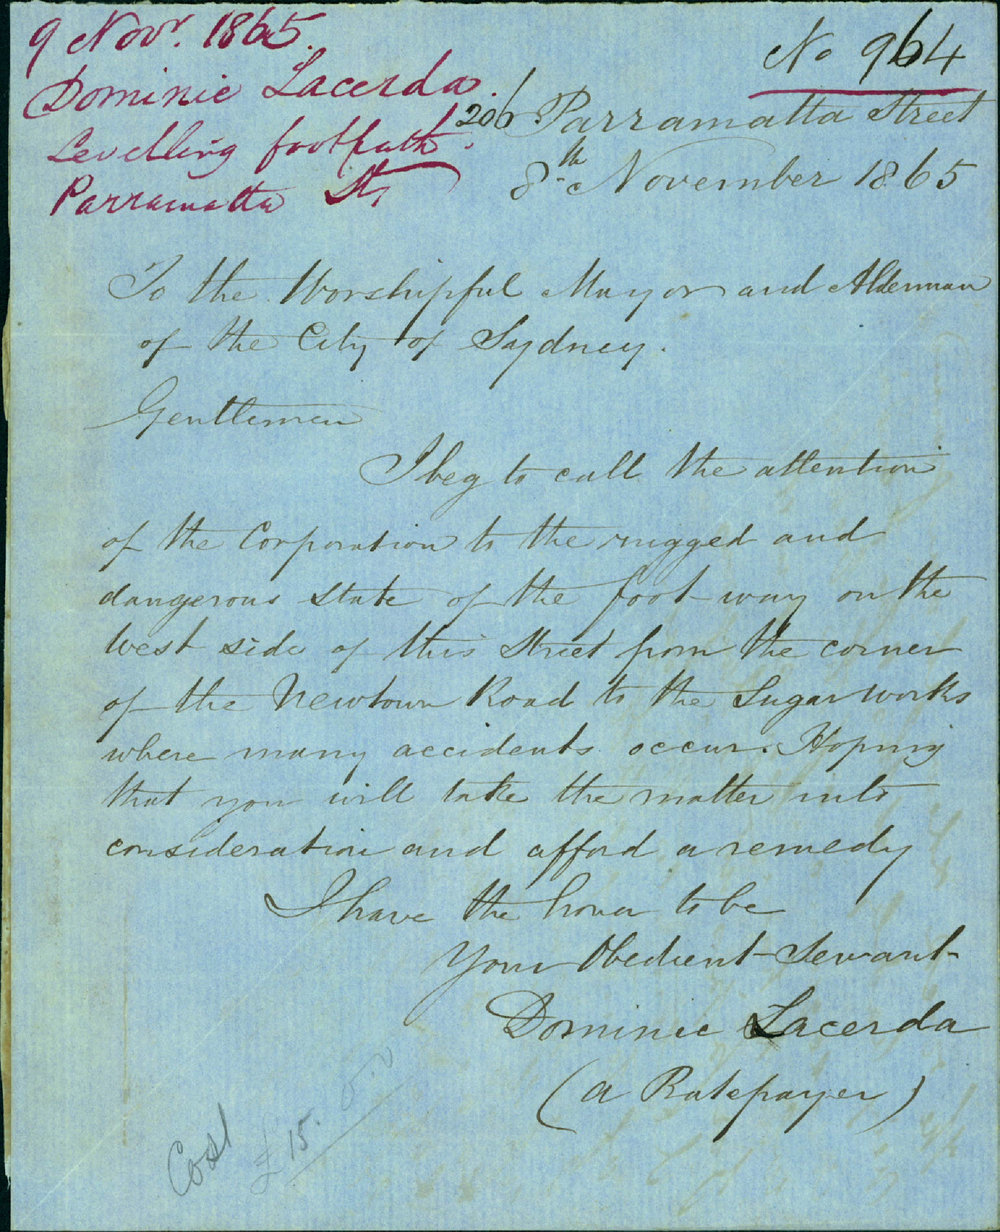 9 Novr. 1865.
Dominic Lacerda.
Levelling footpath.
Parramatta St,
No 964
206 Parramatta Street
8th November 1865
To the Worshipful Mayor and Alderman
of the City of Sydney.
Gentlemen
I beg to call the attention
of the Corporation to the rugged and
dangerous state of the foot way on the
West side of this Street from the corner
of the Newtown Road to the Sugar works
where many accidents occur. Hoping
that you will take the matter into
consideration and afford a remedy
I have the honor to be
Your Obedient Servant
Dominic Lacerda
(a Ratepayer)
Cost
£15.0.0